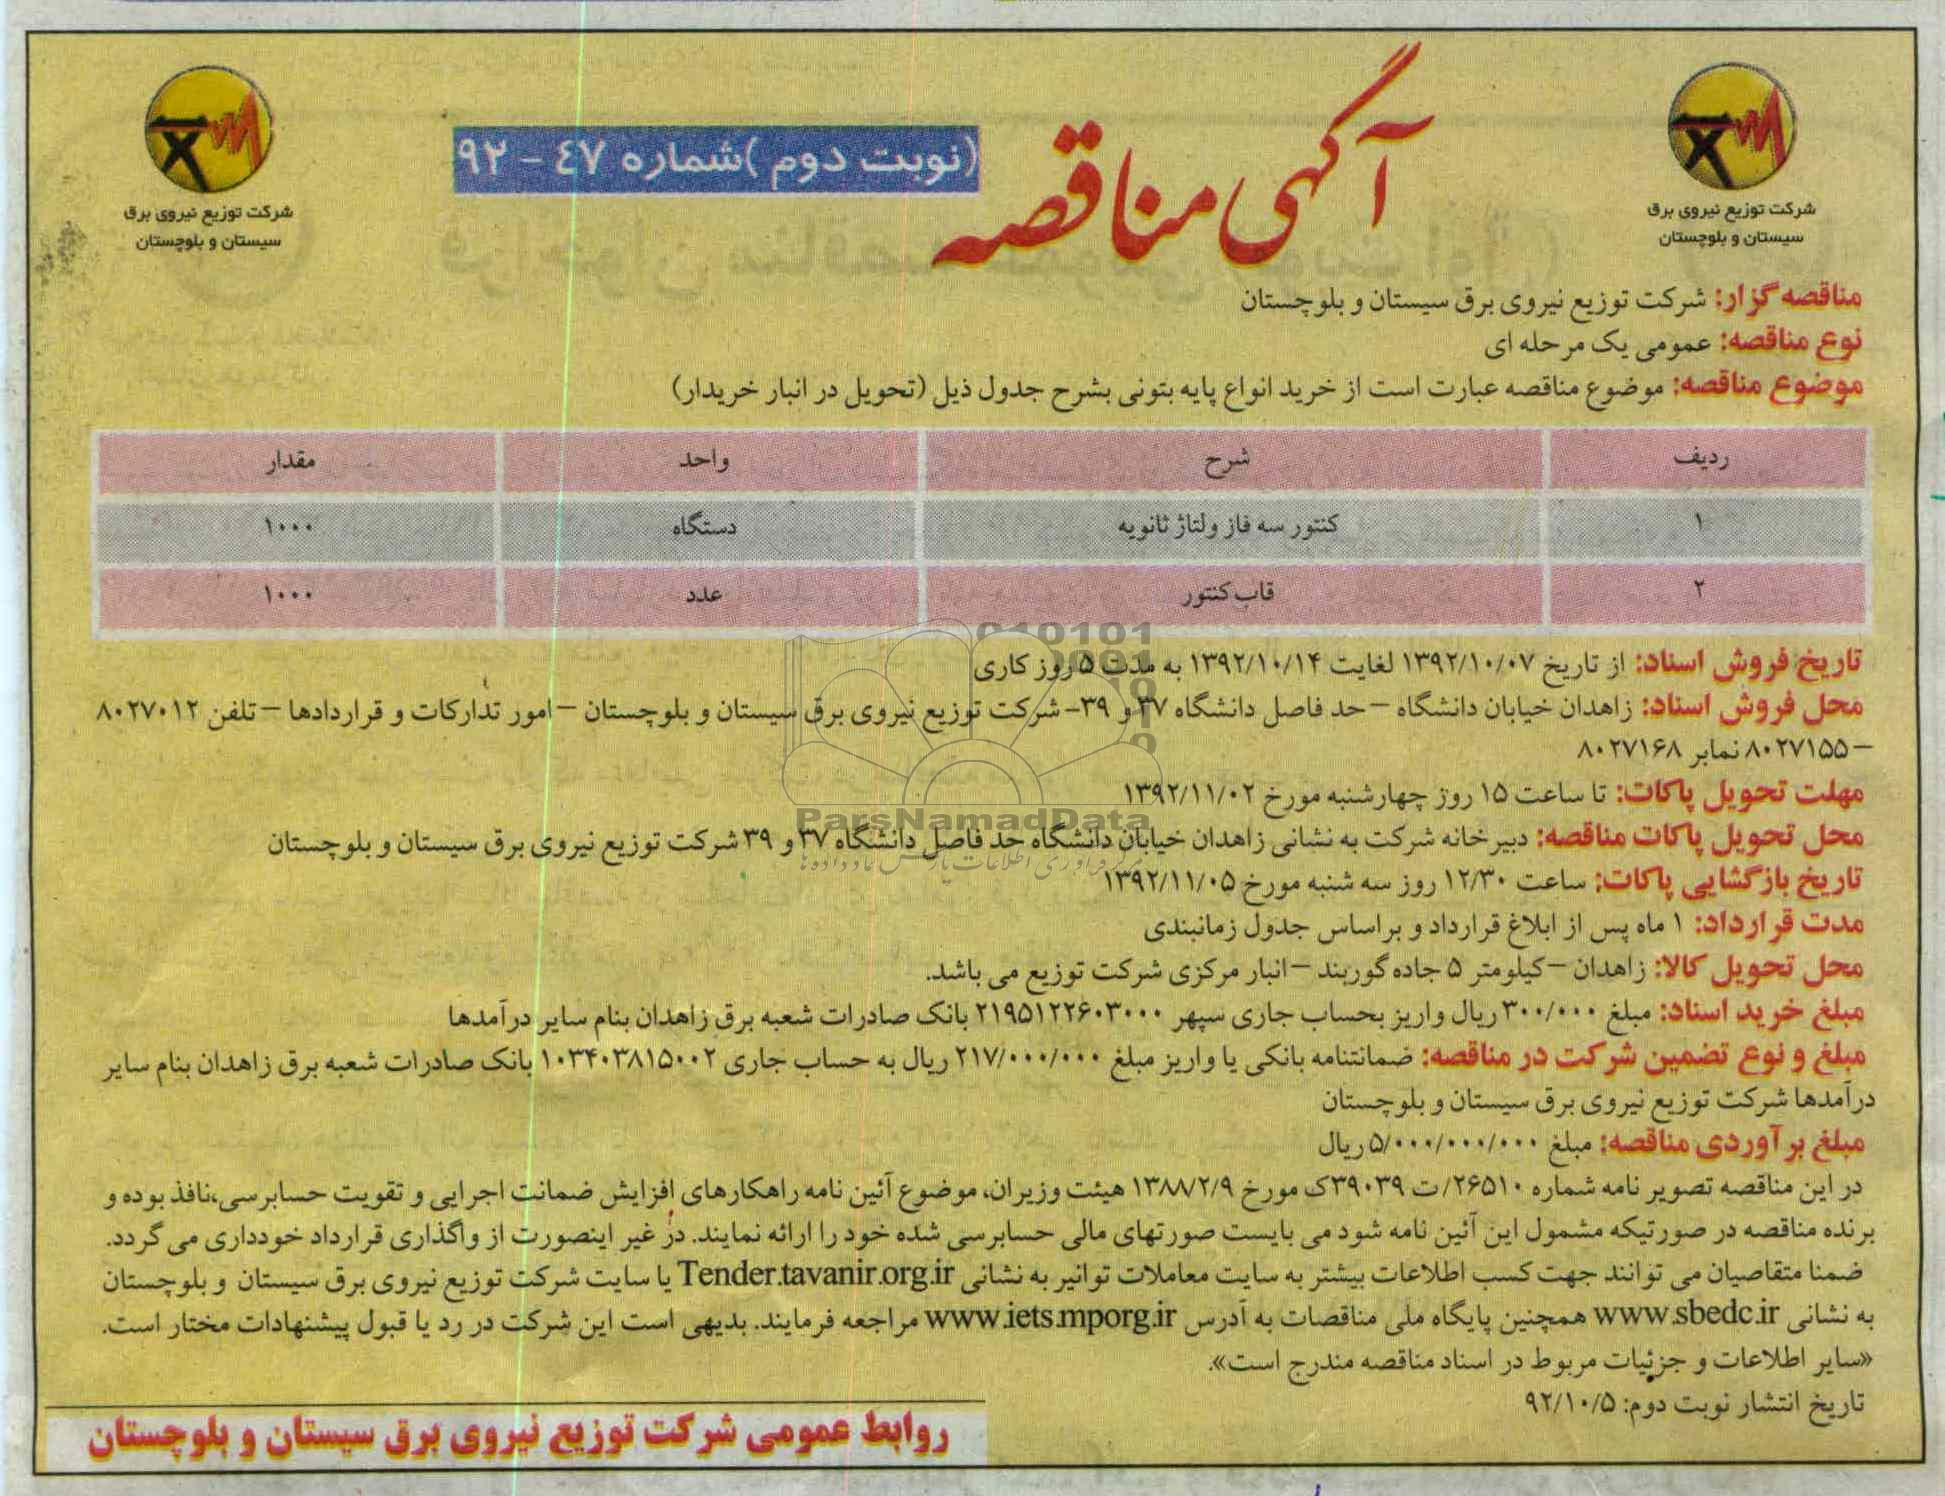 آگهی مناقصه
(نوبت دوم )شماره ٤٧ - ٩٢
شرکت توزیع نیروی برق
سیستان و بلوچستان
شرکت توزیع نیروی برق
سیستان و بلوچستان
مناقصه گزار: شرکت توزیع نیروی برق سیستان و بلوچستان
نوع مناقصه: عمومی یک مرحله ای
موضوع مناقصه: موضوع مناقصه عبارت است از خرید انواع پایه بتونی بشرح جدول ذیل (تحویل در انبار خریدار)
ردیف شرح واحد مقدار
۱ کنتور سه فاز ولتاژ ثانویه دستگاه ۱۰۰۰
۲ قاب کنتور عدد ۱۰۰۰
تاریخ فروش اسناد: از تاریخ ۱۳۹۲/۱۰/۰۷ لغایت ۱۳۹۲/۱۰/۱۴ به مدت ۵ روز کاری
محل فروش اسناد: زاهدان خیابان دانشگاه – حد فاصل دانشگاه ۳۷ و ۳۹- شرکت توزیع نیروی برق سیستان و بلوچستان – امور تدارکات و قراردادها – تلفن ۸۰۲۷۰۱۲
– ۸۰۲۷۱۵۵ نمابر ۸۰۲۷۱۶۸
مهلت تحویل پاکات: تا ساعت ۱۵ روز چهارشنبه مورخ ۱۳۹۲/۱۱/۰۲
ParsNamadData
محل تحویل پاکات مناقصه: دبیرخانه شرکت به نشانی زاهدان خیابان دانشگاه حد فاصل دانشگاه ۳۷ و ۳۹ شرکت توزیع نیروی برق سیستان و بلوچستان
تاریخ بازگشایی پاکات: ساعت ۱۲/۳۰ روز سه شنبه مورخ ۱۳۹۲/۱۱/۰۵
مدت قرارداد: ۱ ماه پس از ابلاغ قرارداد و براساس جدول زمانبندی
محل تحویل کالا: زاهدان – کیلومتر ۵ جاده گوربند – انبار مرکزی شرکت توزیع می باشد.
مبلغ خرید اسناد: مبلغ ۳۰۰/۰۰۰ ریال واریز بحساب جاری سپهر ۲۱۹۵۱۲۲۶۰۳۰۰۰ بانک صادرات شعبه برق زاهدان بنام سایر درآمدها
مبلغ و نوع تضمین شرکت در مناقصه: ضمانتنامه بانکی یا واریز مبلغ ۲۱۷/۰۰۰/۰۰۰ ریال به حساب جاری ۱۰۳۴۰۳۸۱۵۰۰۲ بانک صادرات شعبه برق زاهدان بنام سایر
درآمدها شرکت توزیع نیروی برق سیستان و بلوچستان
مبلغ برآوردی مناقصه: مبلغ ۵/۰۰۰/۰۰۰/۰۰۰ ریال
در این مناقصه تصویر نامه شماره ۲۶۵۱۰/ت ۳۹۰۳۹ک مورخ ۱۳۸۸/۲/۹ هیئت وزیران، موضوع آئین نامه راهکارهای افزایش ضمانت اجرایی و تقویت حسابرسی،نافذ بوده و
برنده مناقصه در صورتیکه مشمول این آئین نامه شود می بایست صورتهای مالی حسابرسی شده خود را ارائه نمایند. در غیر اینصورت از واگذاری قرارداد خودداری می گردد.
ضمنا متقاصیان می توانند جهت کسب اطلاعات بیشتر به سایت معاملات توانیر به نشانی Tender.tavanir.org.ir یا سایت شرکت توزیع نیروی برق سیستان و بلوچستان
به نشانی www.sbedc.ir همچنین پایگاه ملی مناقصات به آدرس www.iets.mporg.ir مراجعه فرمایند. بدیهی است این شرکت در رد یا قبول پیشنهادات مختار است.
«سایر اطلاعات و جزئیات مربوط در اسناد مناقصه مندرج است».
تاریخ انتشار نوبت دوم: ۹۲/۱۰/۵
روابط عمومی شرکت توزیع نیروی برق سیستان و بلوچستان